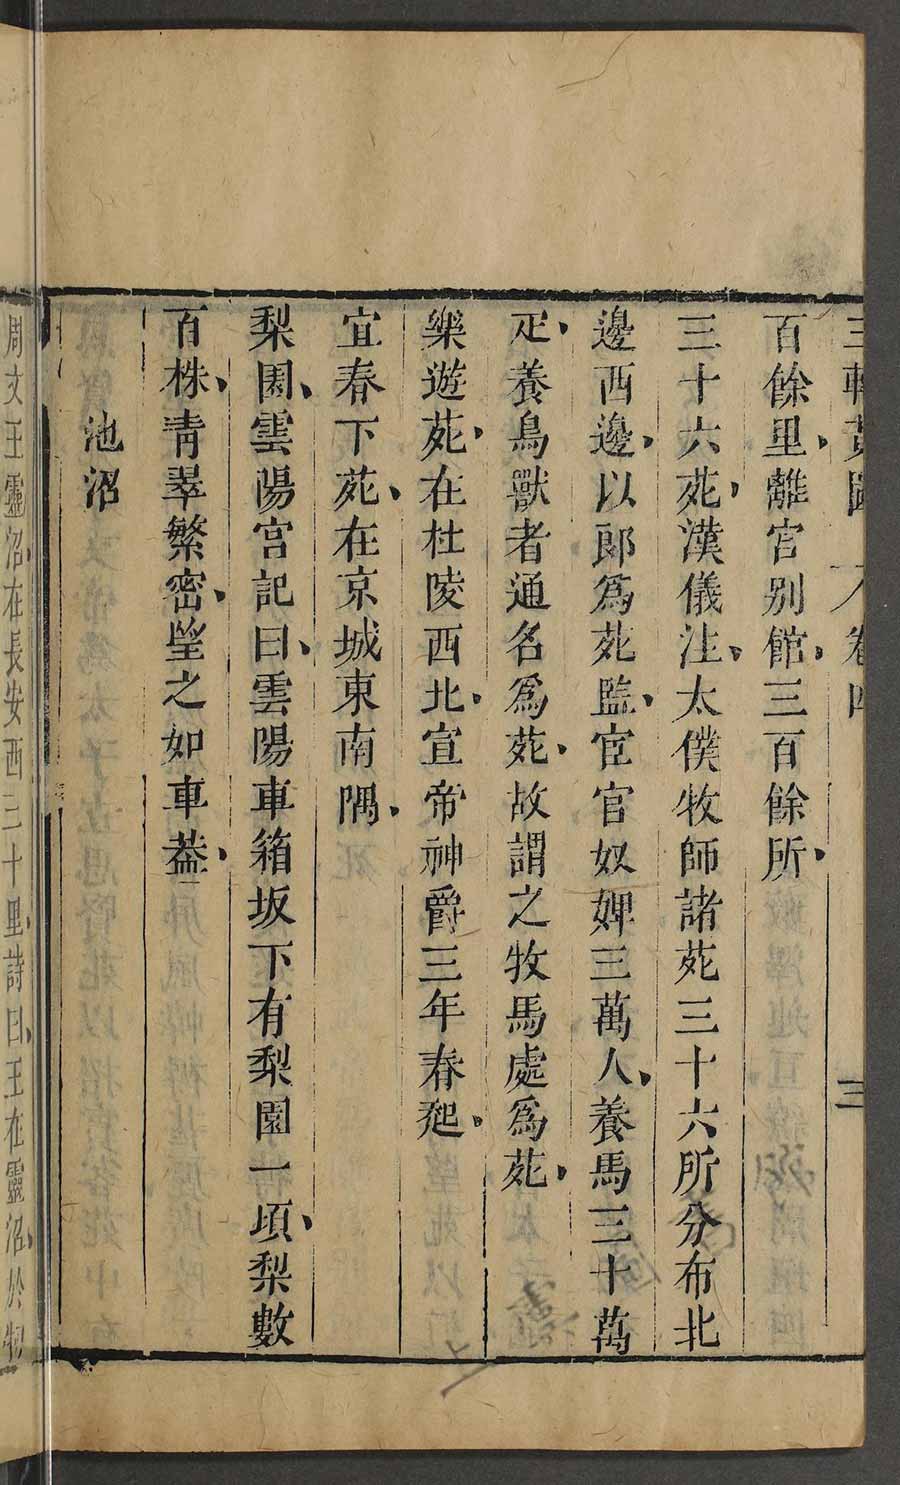 三輔黃圖 卷四 三
百餘里離宮別館三百餘所
三十六苑漢儀注太僕牧師諸苑三十六所分布北
邊西邊以郎爲苑監宦官奴婢三萬人養馬三十萬
疋養鳥獸者通名爲苑故謂之牧馬處爲苑
樂遊苑在杜陵西北宣帝神爵三年春起
宜春下苑在京城東南隅
梨園雲陽宮記曰雲陽車箱坂下有梨園一頃梨數
百株青翠繁密望之如車蓋
池沼
周文王靈沼在長安西三十里詩曰王在靈沼於牣